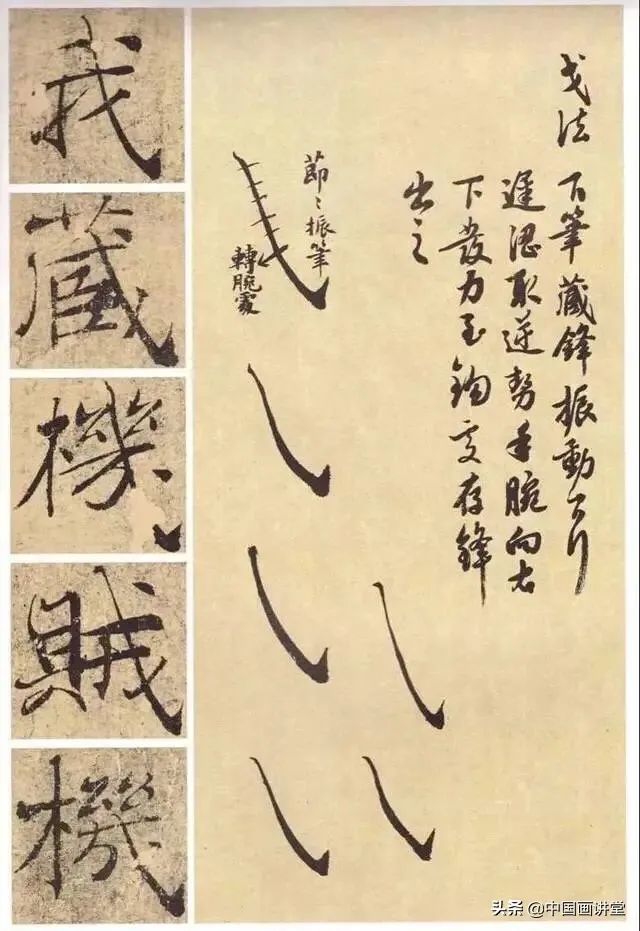 戈法
下筆藏鋒振動而行
遲澀取逆勢手腕向右
下發力至鈎處存鋒
出之
節〻振筆
轉腕處
我
藏
機
賊
機
头条 @中国画讲堂